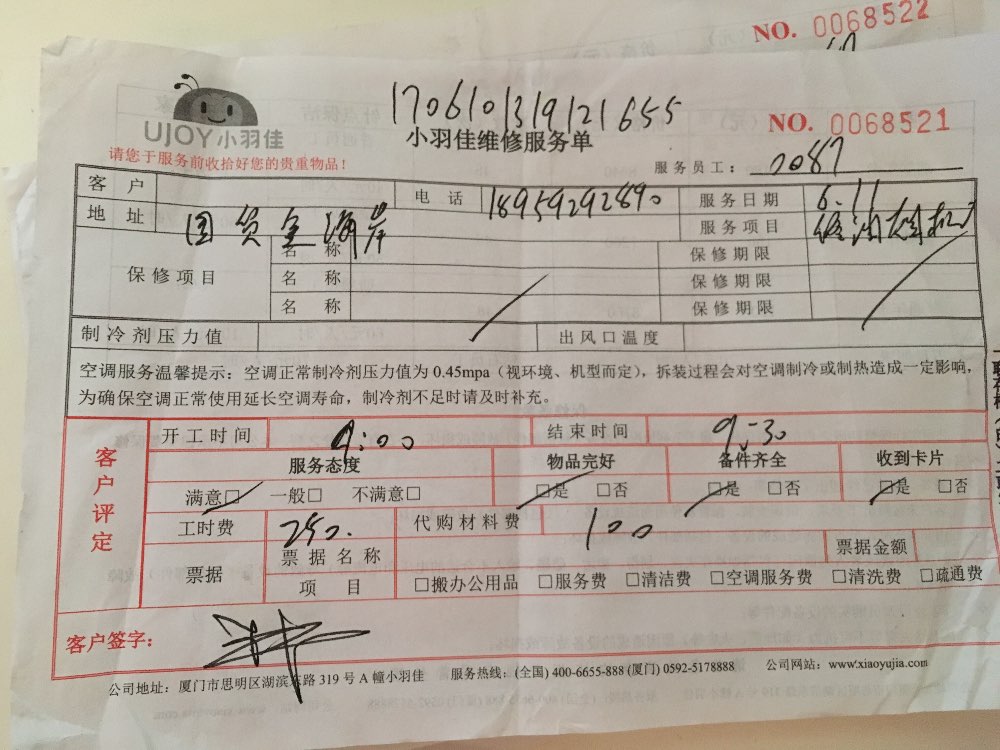 NO. 0068522
170610319121655
UJOY小羽佳
小羽佳维修服务单
NO. 0068521
请您于服务前收拾好您的贵重物品！
服务员工： 2087
客 户 电 话 18959292890 服务日期 6.11
地 址 国贸金海岸 服务项目 修油烟机
保修项目 名 称 保修期限
名 称 保修期限
名 称 保修期限
制冷剂压力值 出风口温度
空调服务温馨提示：空调正常制冷剂压力值为 0.45mpa（视环境、机型而定），拆装过程会对空调制冷或制热造成一定影响，
为确保空调正常使用延长空调寿命，制冷剂不足时请及时补充。
客户评定
开工时间 9:00 结束时间 9:30
服务态度 物品完好 备件齐全 收到卡片
满意□ 一般□ 不满意□ □是 □否 □是 □否 □是 □否
工时费 250. 代购材料费 100
票据 票据名称 票据金额
项 目 □搬办公用品 □服务费 □清洁费 □空调服务费 □清洗费 □疏通费
客户签字：
公司地址：厦门市思明区湖滨东路 319 号 A 幢小羽佳 服务热线：(全国) 400-6655-888 (厦门) 0592-5178888 公司网站：www.xiaoyujia.com